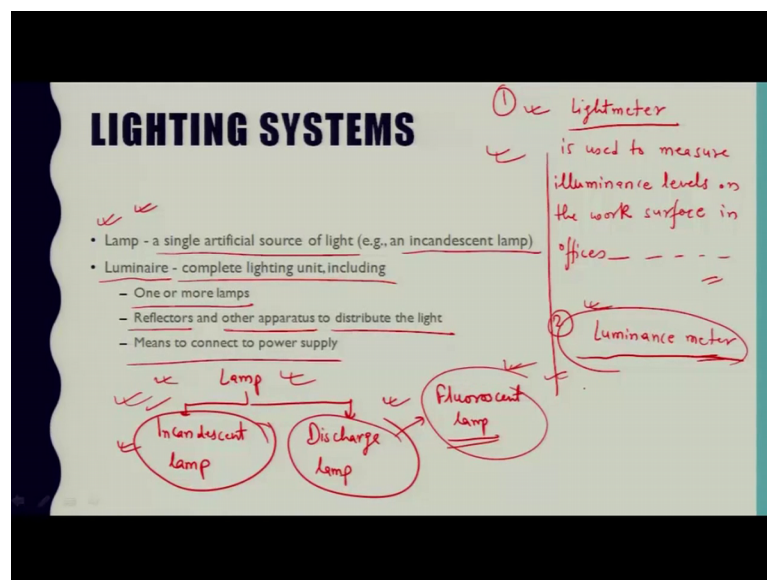 LIGHTING SYSTEMS
• Lamp - a single artificial source of light (e.g., an incandescent lamp)
• Luminaire - complete lighting unit, including
– One or more lamps
– Reflectors and other apparatus to distribute the light
– Means to connect to power supply
Lamp
Incandescent
lamp
Discharge
lamp
Fluorescent
lamp
1 Lightmeter
is used to measure
illuminance levels on
the work surface in
offices
2 Luminance meter